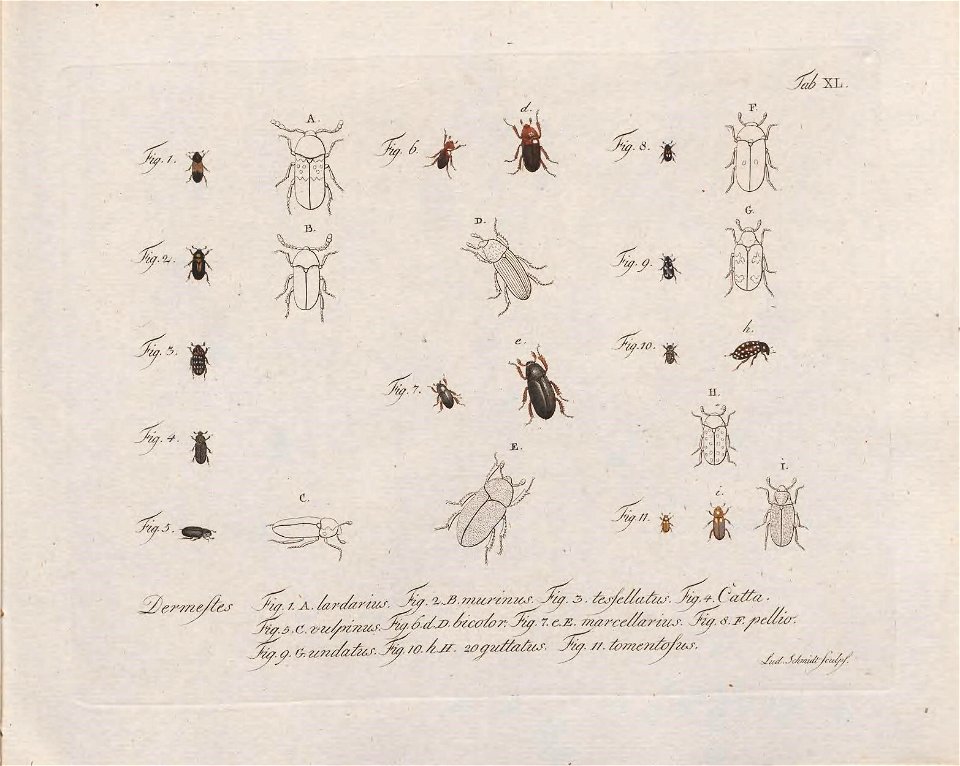 Tab XL.
A.
d.
F.
Fig. 1.
Fig. 6.
Fig. 8.
B.
D.
G.
Fig. 2.
Fig. 9.
Fig. 3.
e.
Fig. 10.
h.
Fig. 7.
H.
Fig. 4.
E.
I.
C.
i.
Fig. 5.
Fig. 11.
Dermeſtes Fig. 1. A. lardarius. Fig. 2. B. murinus. Fig. 3. teſsellatus. Fig. 4. Catta.
Fig. 5. C. vulpinus. Fig. 6. d. D. bicolor. Fig. 7. e. E. marcellarius. Fig. 8. F. pellio.
Fig. 9. G. undatus. Fig. 10. h. H. 20 guttatus. Fig. 11. tomentoſus.
Lud. Schmidt ſculpſ.